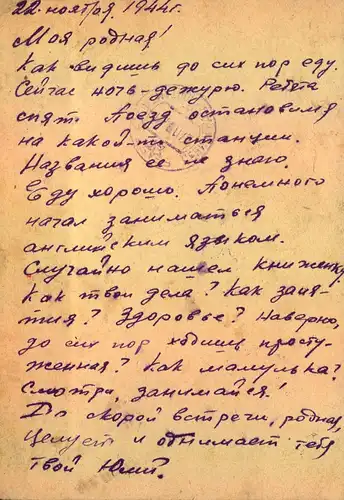 22. ноября. 1944г.
Моя родная!
Как видишь до сих пор еду.
Сейчас ночь - дежурю. Ребята
спят. Поезд остановился
на какой-то станции.
Названия ее не знаю.
Еду хорошо. Понемного
начал заниматься
английским языком.
Случайно нашел книженку.
Как твои дела? Как заня-
тия? Здоровье? Наверно,
до сих пор ходишь просту-
женная? Как мамулька?
Смотри, занимайся!
До скорой встречи, родная,
Целует и обнимает тебя
твой Юлий.